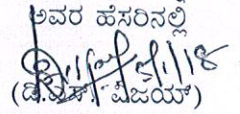 ಅವರ ಹೆಸರಿನಲ್ಲಿ
(ಡಿ.ಎಸ್. ವಿಜಯ್)